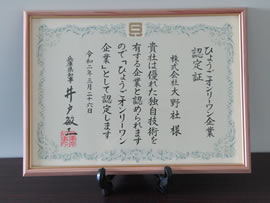 ひょうごオンリーワン企業
認定証
株式会社大野社 様
貴社は優れた独自技術を
有する企業と認められます
ので「ひょうごオンリーワン
企業」として認定します
令和二年三月二十六日
兵庫県知事 井戸敏三